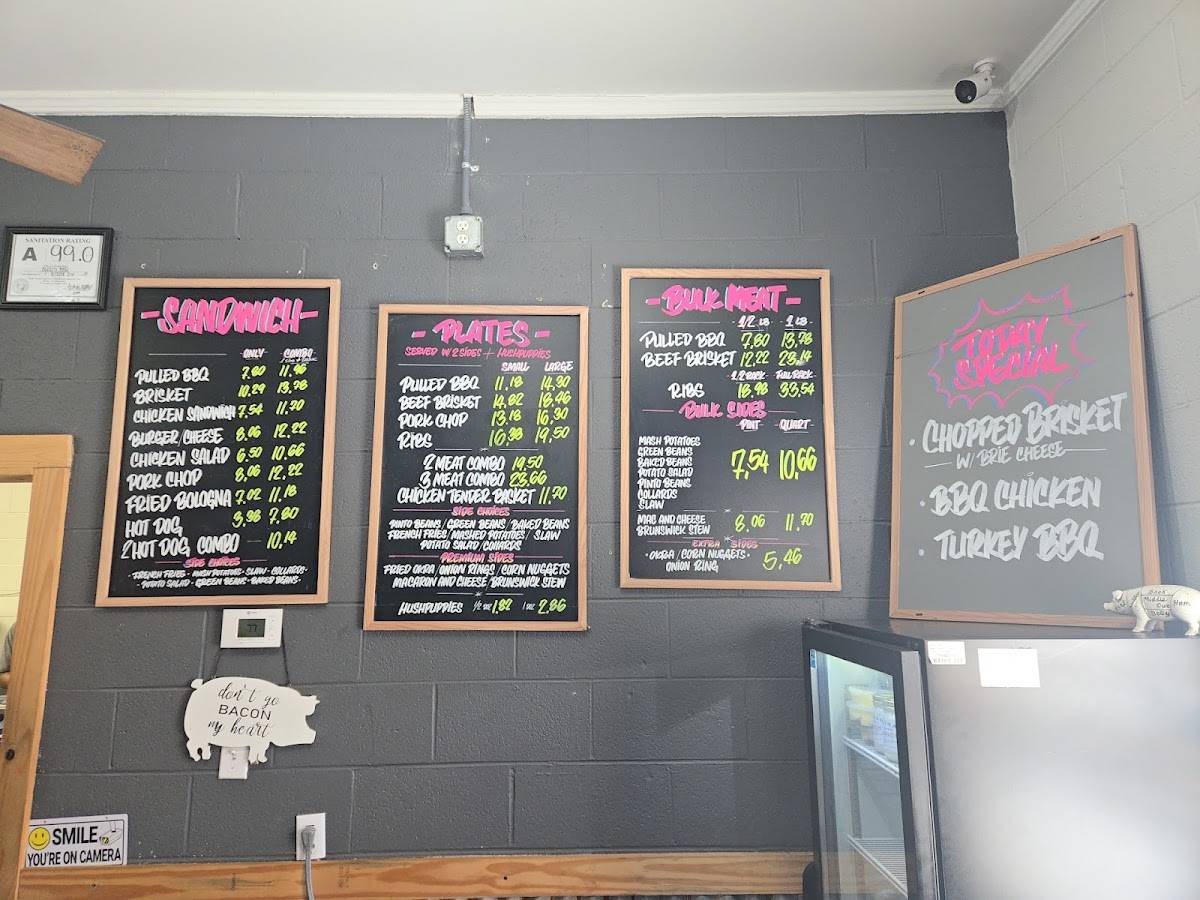 SANITATION RATING
A 99.0
-SANDWICH-
ONLY COMBO
PULLED BBQ 7.80 11.96
BRISKET 10.29 13.78
CHICKEN SANDWICH 7.54 11.70
BURGER/CHEESE 8.06 12.22
CHICKEN SALAD 6.50 10.66
PORK CHOP 8.06 12.22
FRIED BOLOGNA 7.02 11.18
HOT DOG 3.38 7.80
2 HOT DOG COMBO 10.14
SIDE CHOICES
- FRENCH FRIES - MASH POTATOES - SLAW - COLLARDS -
POTATO SALAD - GREEN BEANS - BAKED BEANS -
- PLATES -
SERVED W/ 2 SIDES + HUSHPUPPIES
SMALL LARGE
PULLED BBQ 11.18 14.30
BEEF BRISKET 14.82 18.46
PORK CHOP 13.18 16.30
RIBS 16.38 19.50
2 MEAT COMBO 19.50
3 MEAT COMBO 23.66
CHICKEN TENDER BASKET 11.70
SIDE CHOICES
PINTO BEANS/GREEN BEANS/BAKED BEANS
FRENCH FRIES/MASHED POTATOES/SLAW
POTATO SALAD/COLLARDS
PREMIUM SIDES
FRIED OKRA/ONION RINGS/CORN NUGGETS
MACARON AND CHEESE/BRUNSWICK STEW
HUSHPUPPIES 1/2 DOZ 1.82 1 DOZ 2.86
- BULK MEAT -
1/2 LB 1 LB
PULLED BBQ 7.80 13.78
BEEF BRISKET 12.22 23.14
1/2 RACK FULL RACK
RIBS 18.98 33.54
BULK SIDES
PINT QUART
MASH POTATOES
GREEN BEANS
BAKED BEANS
POTATO SALAD
PINTO BEANS
COLLARDS
SLAW
7.54 10.66
MAC AND CHEESE
BRUNSWICK STEW
8.06 11.70
EXTRA SIDES
- OKRA/CORN NUGGETS -
ONION RING
5.46
TODAY
SPECIAL
· CHOPPED BRISKET
W/ BRIE CHEESE
· BBQ CHICKEN
· TURKEY BBQ
77
don't go
BACON
my heart
SMILE
YOU'RE ON CAMERA
Ham